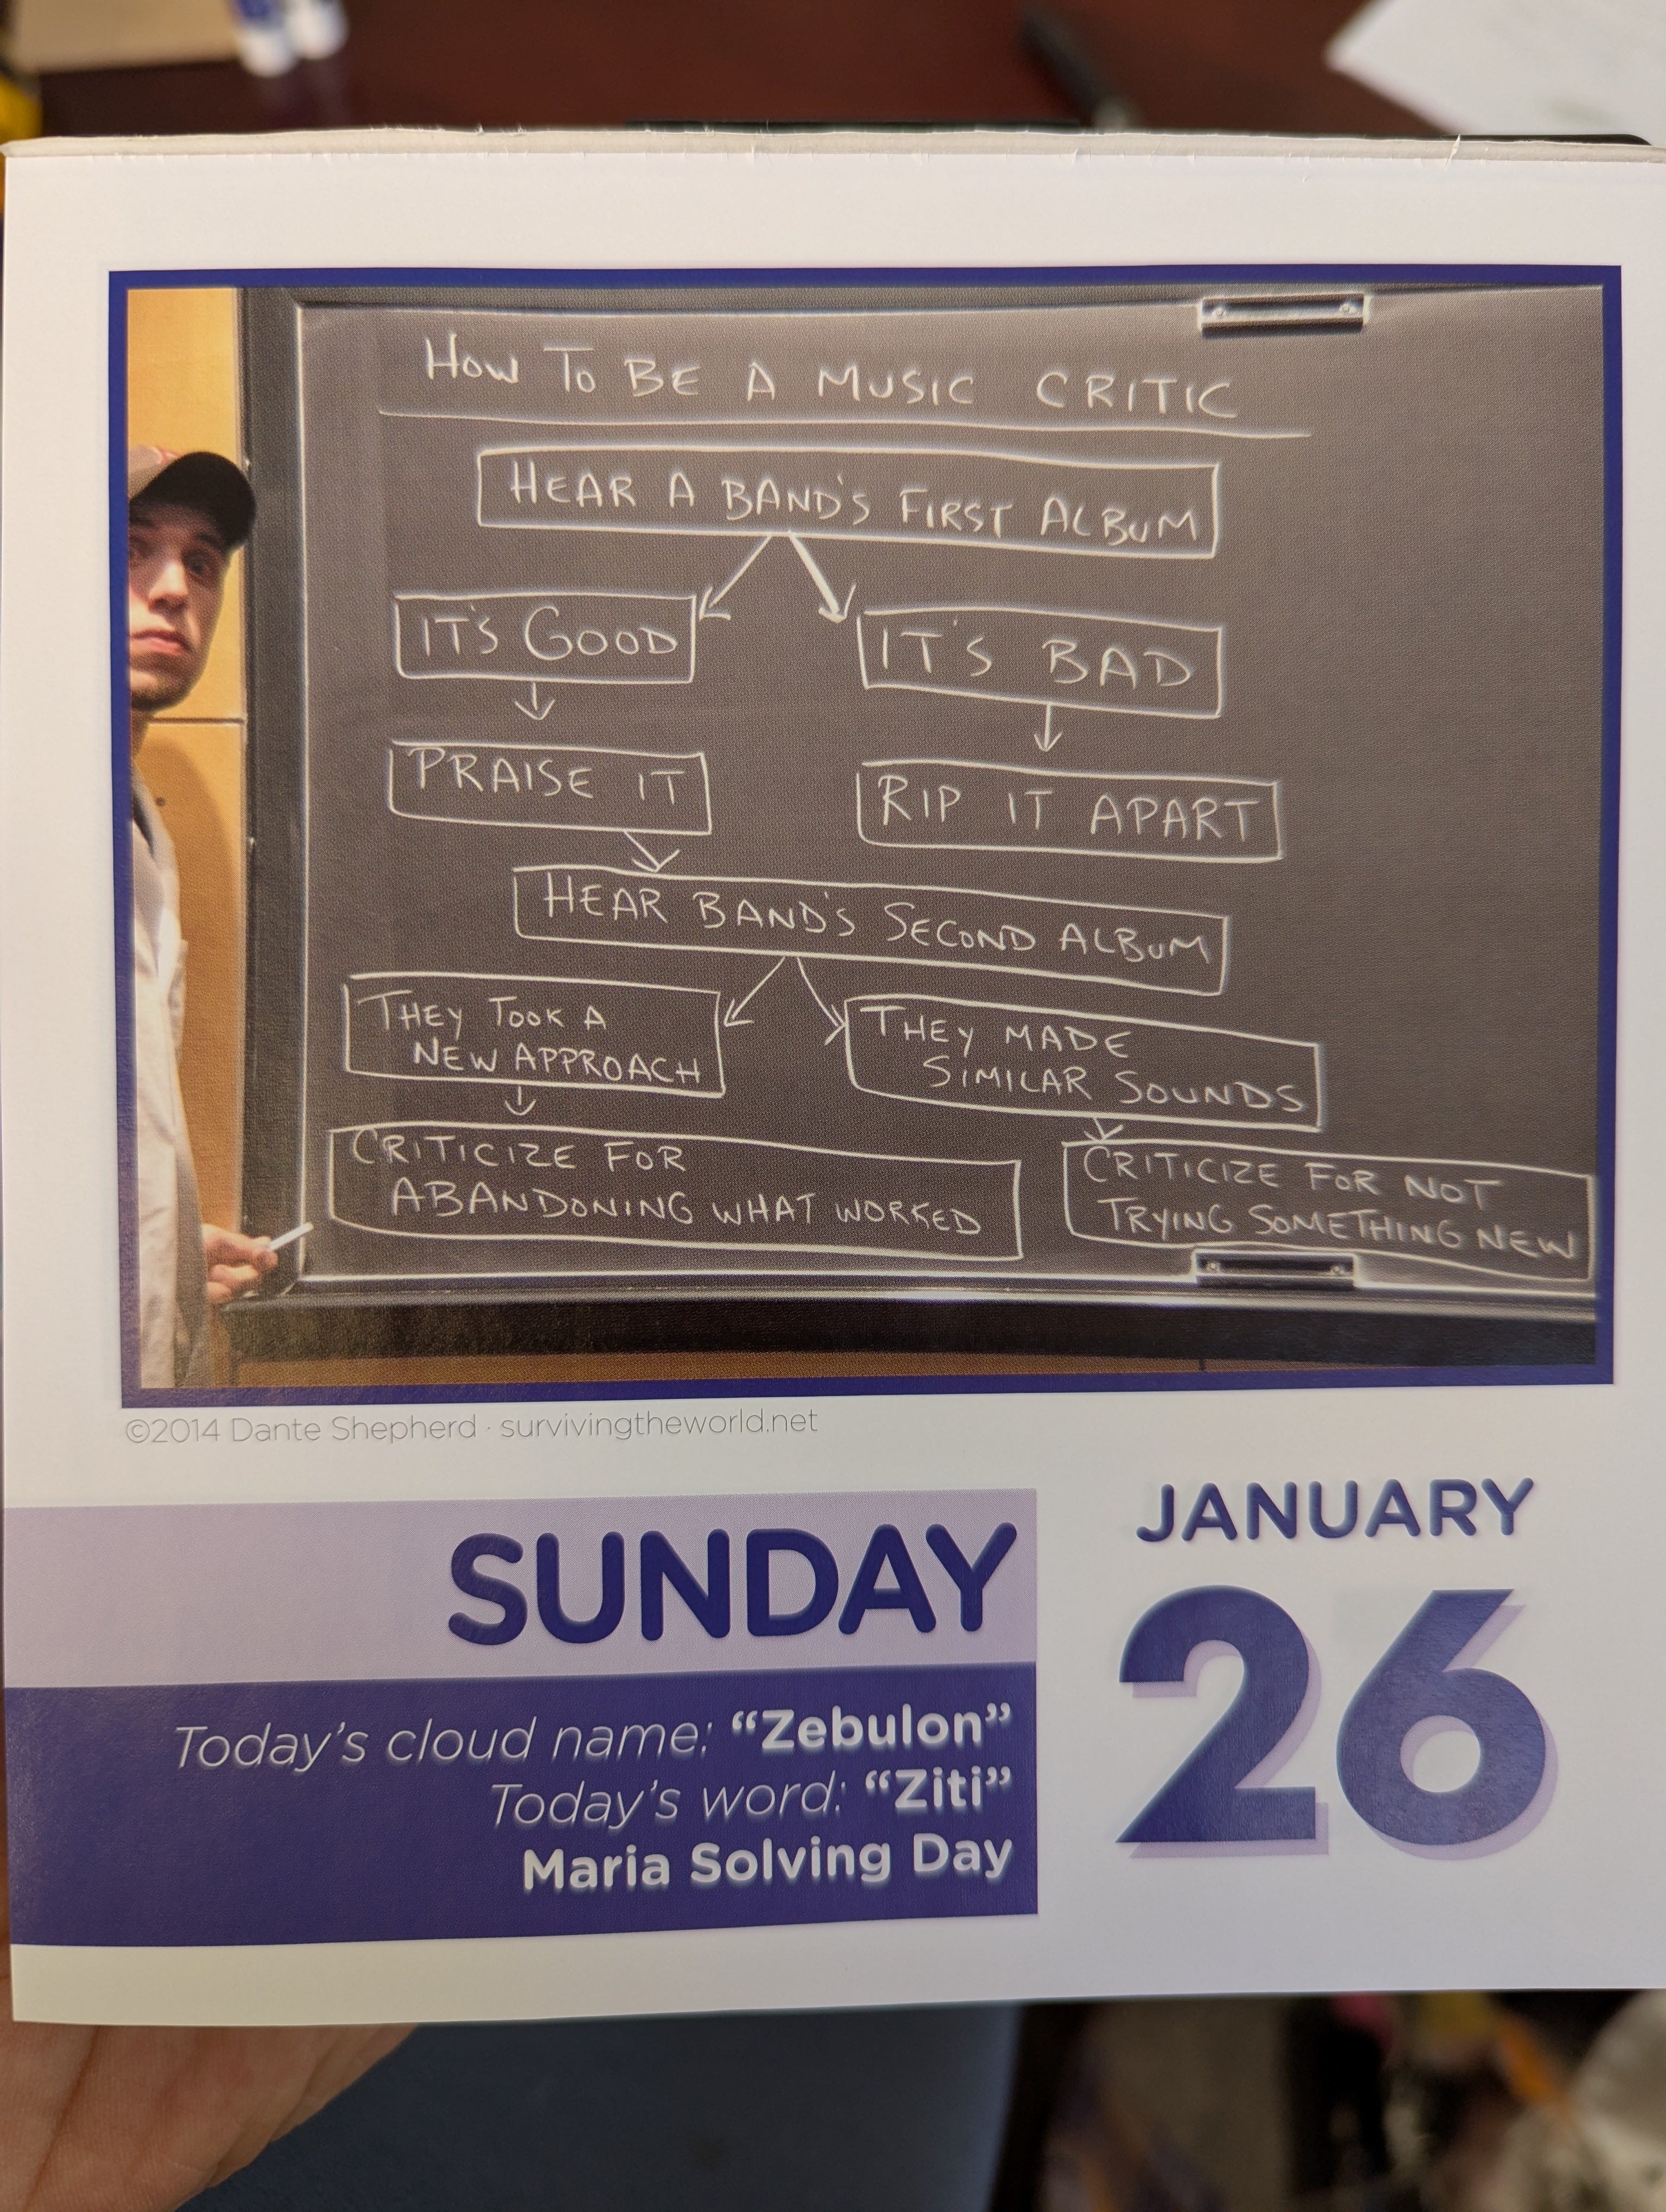 HOW TO BE A MUSIC CRITIC
HEAR A BAND'S FIRST ALBUM
IT'S GOOD
IT'S BAD
PRAISE IT
RIP IT APART
HEAR BAND'S SECOND ALBUM
THEY TOOK A
NEW APPROACH
THEY MADE
SIMILAR SOUNDS
CRITICIZE FOR
ABANDONING WHAT WORKED
CRITICIZE FOR NOT
TRYING SOMETHING NEW
©2014 Dante Shepherd · survivingtheworld.net
SUNDAY
JANUARY
26
Today's cloud name: “Zebulon”
Today's word: “Ziti”
Maria Solving Day